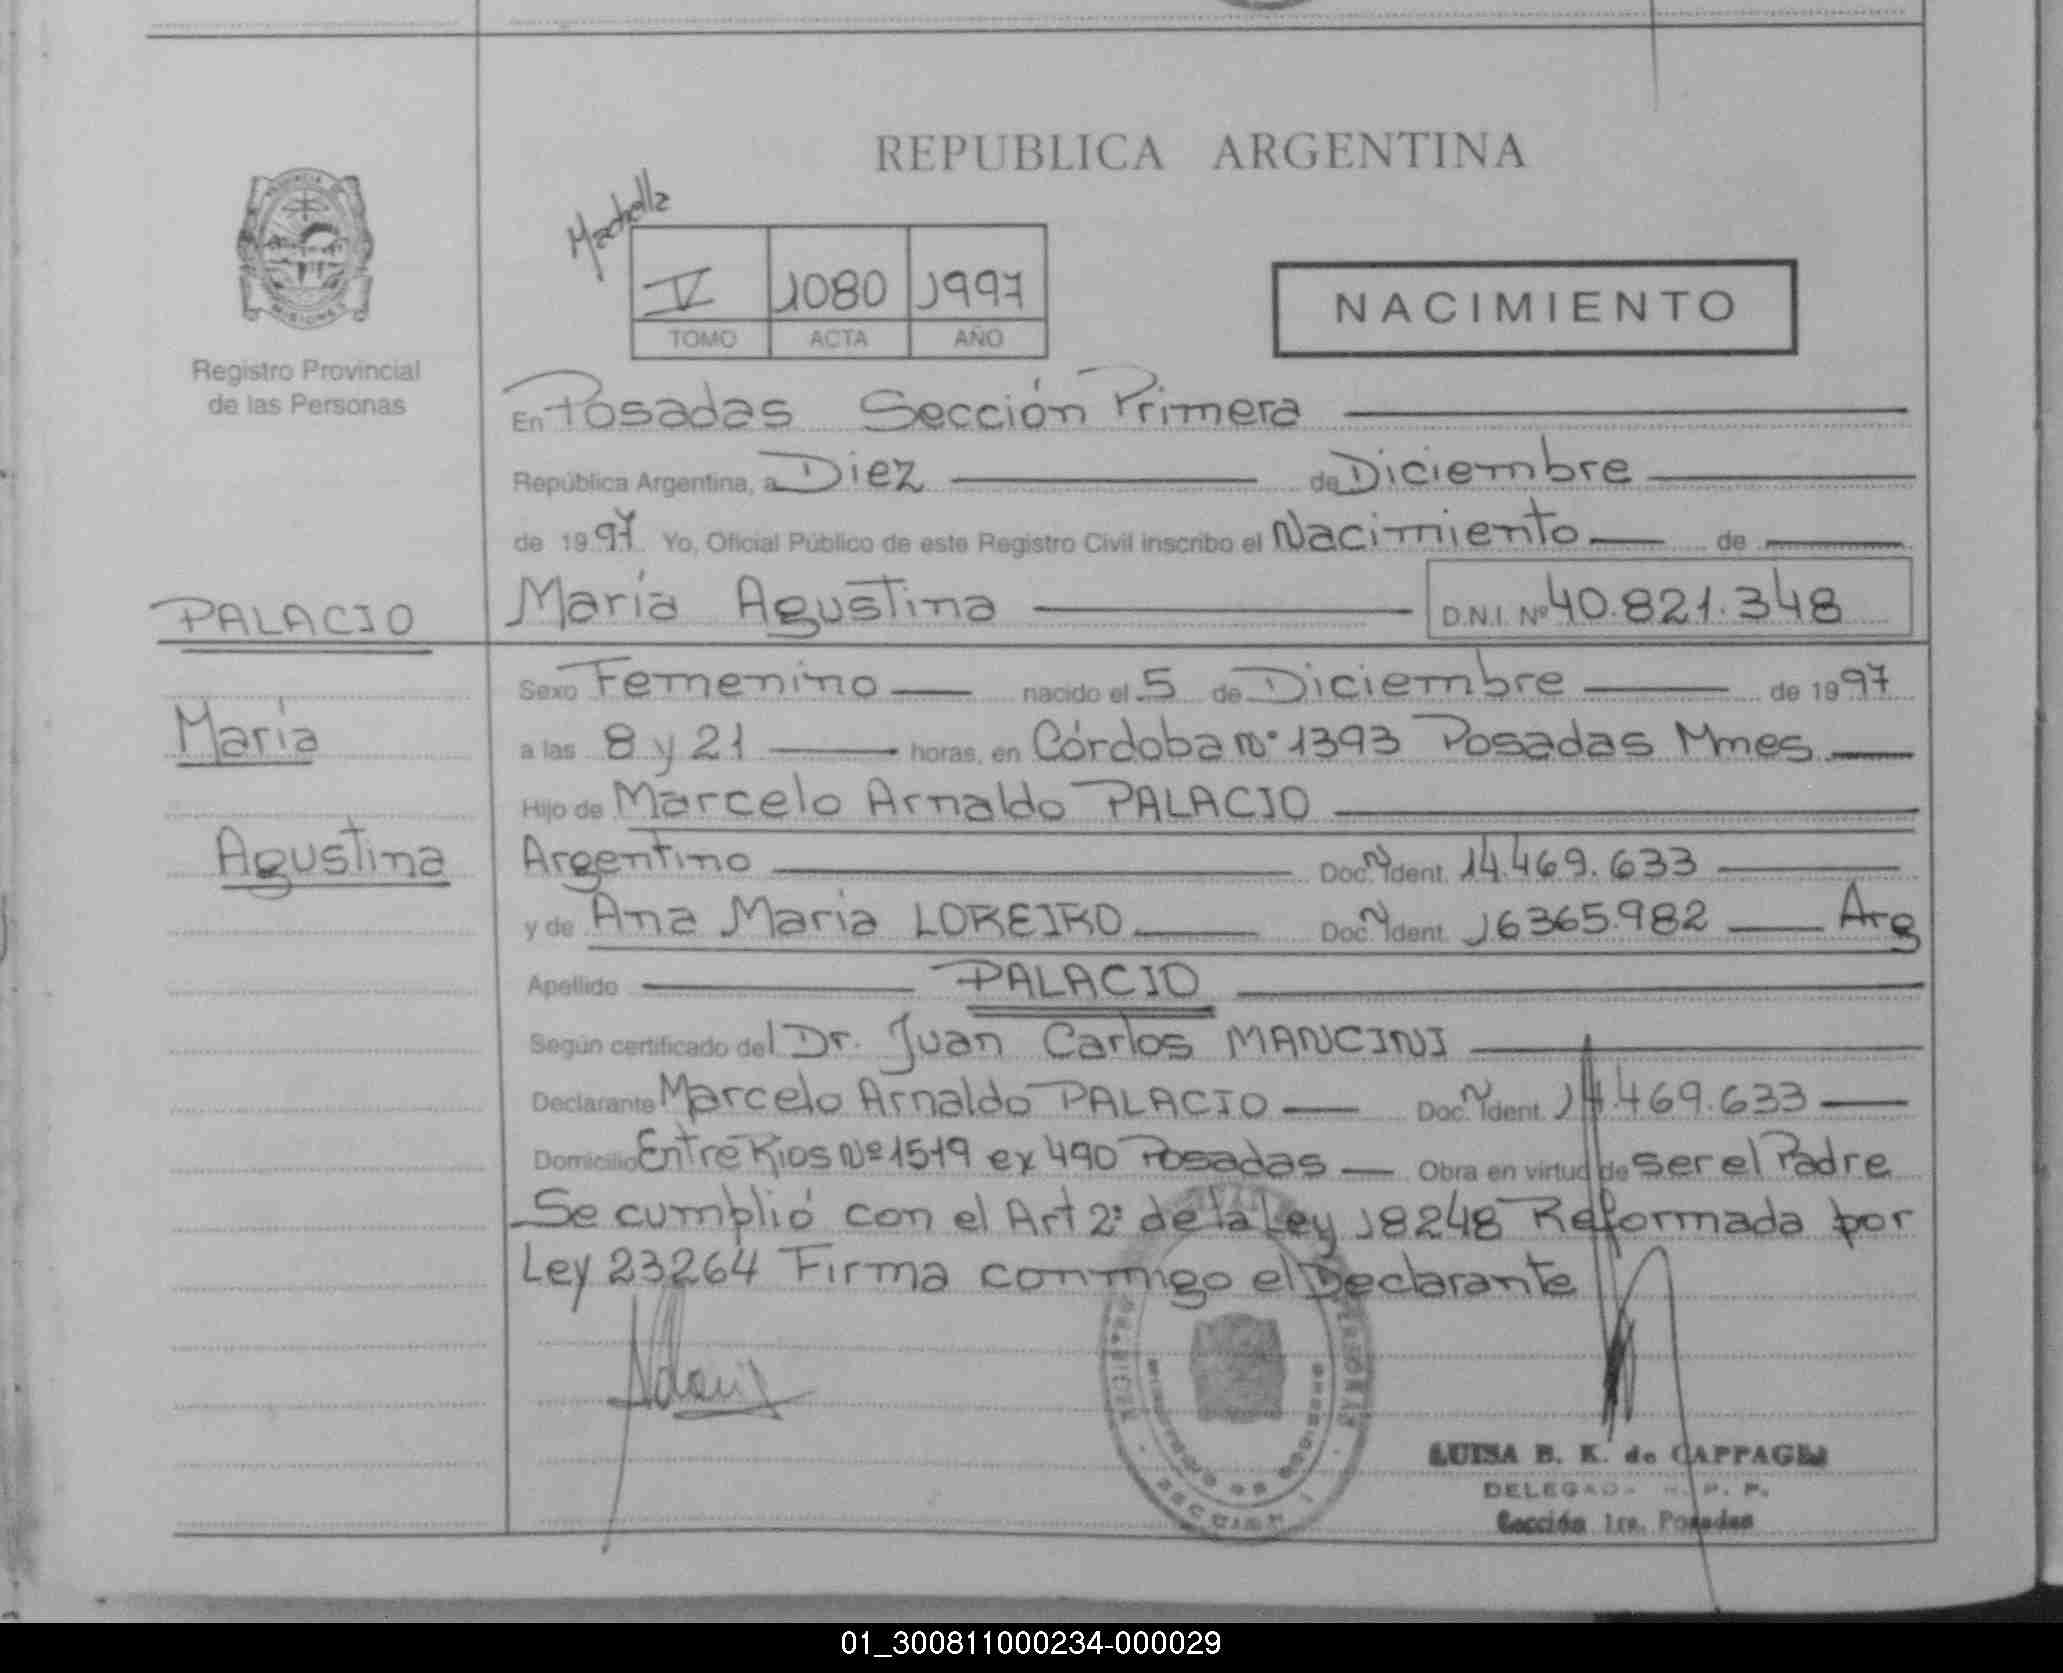 REPUBLICA ARGENTINA
PROVINCIA DE
MISIONES
Registro Provincial
de las Personas
V 1080 1997
TOMO ACTA AÑO
NACIMIENTO
En Posadas Sección Primera
República Argentina, a Diez de Diciembre
de 1997 Yo, Oficial Público de este Registro Civil inscribo el Nacimiento de
PALACIO
María Agustina D.N.I. Nº 40.821.348
Sexo Femenino nacido el 5 de Diciembre de 1997
María
a las 8 y 21 horas, en Córdoba nº 1393 Posadas Mnes
Hijo de Marcelo Arnaldo PALACIO
Agustina
Argentino Doc. Ident. 14.469.633
y de Ana Maria LOREIRO Doc. Ident. 16365.982 Arg
Apellido PALACIO
Según certificado del Dr. Juan Carlos MANCINI
Declarante Marcelo Arnaldo PALACIO Doc. Ident. 14.469.633
Domicilio Entre Rios Nº 1519 ex 490 Posadas Obra en virtud de ser el Padre
Se cumplió con el Art 2º de la Ley 18248 Reformada por
Ley 23264 Firma conmigo el Declarante
LUISA B. K. de
DELEGADA R. P. P.
Sección 1ra. Posadas
01_300811000234-000029